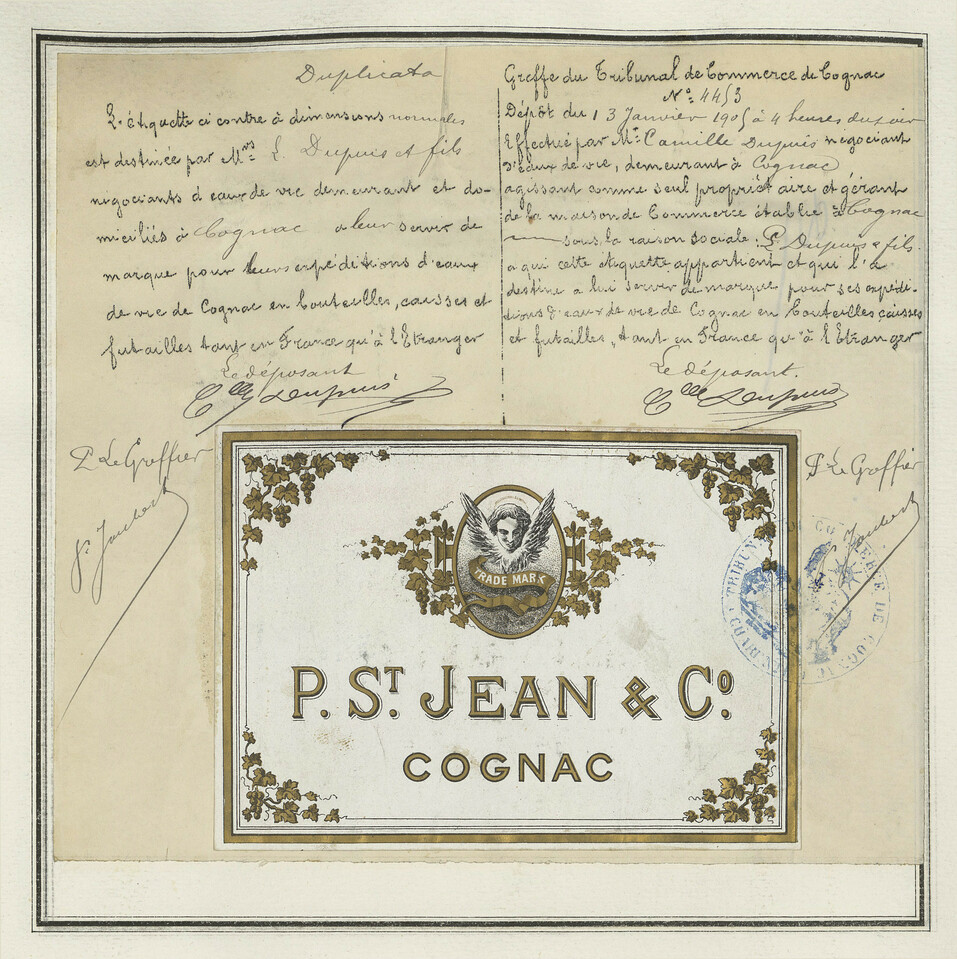 Duplicata
L'étiquette ci contre à dimensions normales
est destinée par Mrs L. Dupuis et fils
négociants d'eaux de vie demeurant et do-
miciliés à Cognac a leur servir de
marque pour leurs expéditions d'eaux
de vie de Cognac en bouteilles, caisses et
futailles tant en France qu'à l'Etranger
Le déposant
Clle Dupuis
P. Le Greffier
Greffe du Tribunal de Commerce de Cognac
No: 4453
Dépôt du 13 Janvier 1905 à 4 heures du soir
Effectué par Mr. Camille Dupuis négociant
d'eaux de vie, demeurant à Cognac
agissant comme seul propriétaire et gérant
de la maison de Commerce établie à Cognac
sous la raison sociale: L. Dupuis & fils.
a qui cette étiquette appartient et qui l'a
destine a lui servir de marque pour ses expédi-
tions d'eaux de vie de Cognac en bouteilles caisses
et futailles, tant en France qu'à l'Etranger
Le déposant.
Clle Dupuis
P. Le Greffier
TRADE MARK
P. ST. JEAN & CO.
COGNAC